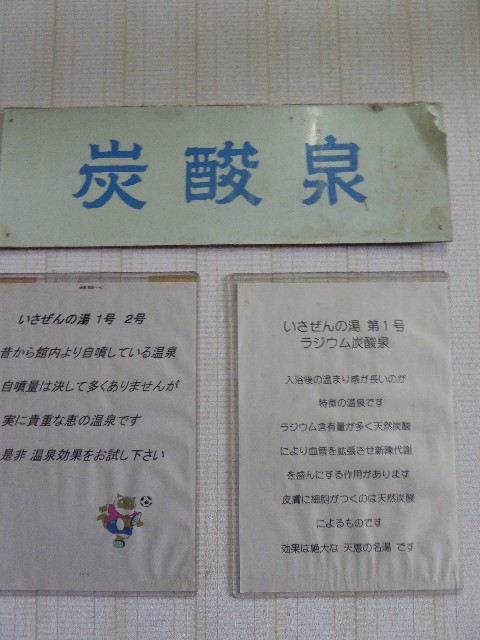 炭酸泉
いさぜんの湯 1号 2号
昔から館内より自噴している温泉
自噴量は決して多くありませんが
実に貴重な恵の温泉です
是非 温泉効果をお試し下さい
いさぜんの湯 第1号
ラジウム炭酸泉
入浴後の温まり感が長いのが
特徴の温泉です
ラジウム含有量が多く天然炭酸
により血管を拡張させ新陳代謝
を盛んにする作用があります
皮膚に細胞がつくのは天然炭酸
によるものです
効果は絶大な 天恵の名湯 です